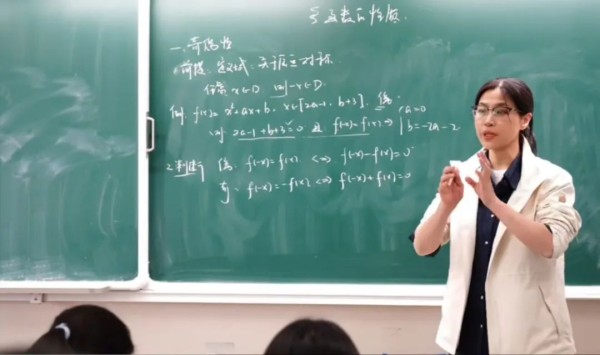 §函数的性质.
一、奇偶性
①前提:定义域关于原点对称.
任意x∈D, 则-x∈D.
例 f(x)=x²+ax+b, x∈[2a-1, b+3]. 偶
则 2a-1+b+3=0 且 f(-x)=f(x) ⇒ a=0
b=-2a-2
2.判断 偶: f(-x)=f(x) ⇔ f(-x)-f(x)=0
奇: f(-x)=-f(x) ⇔ f(-x)+f(x)=0